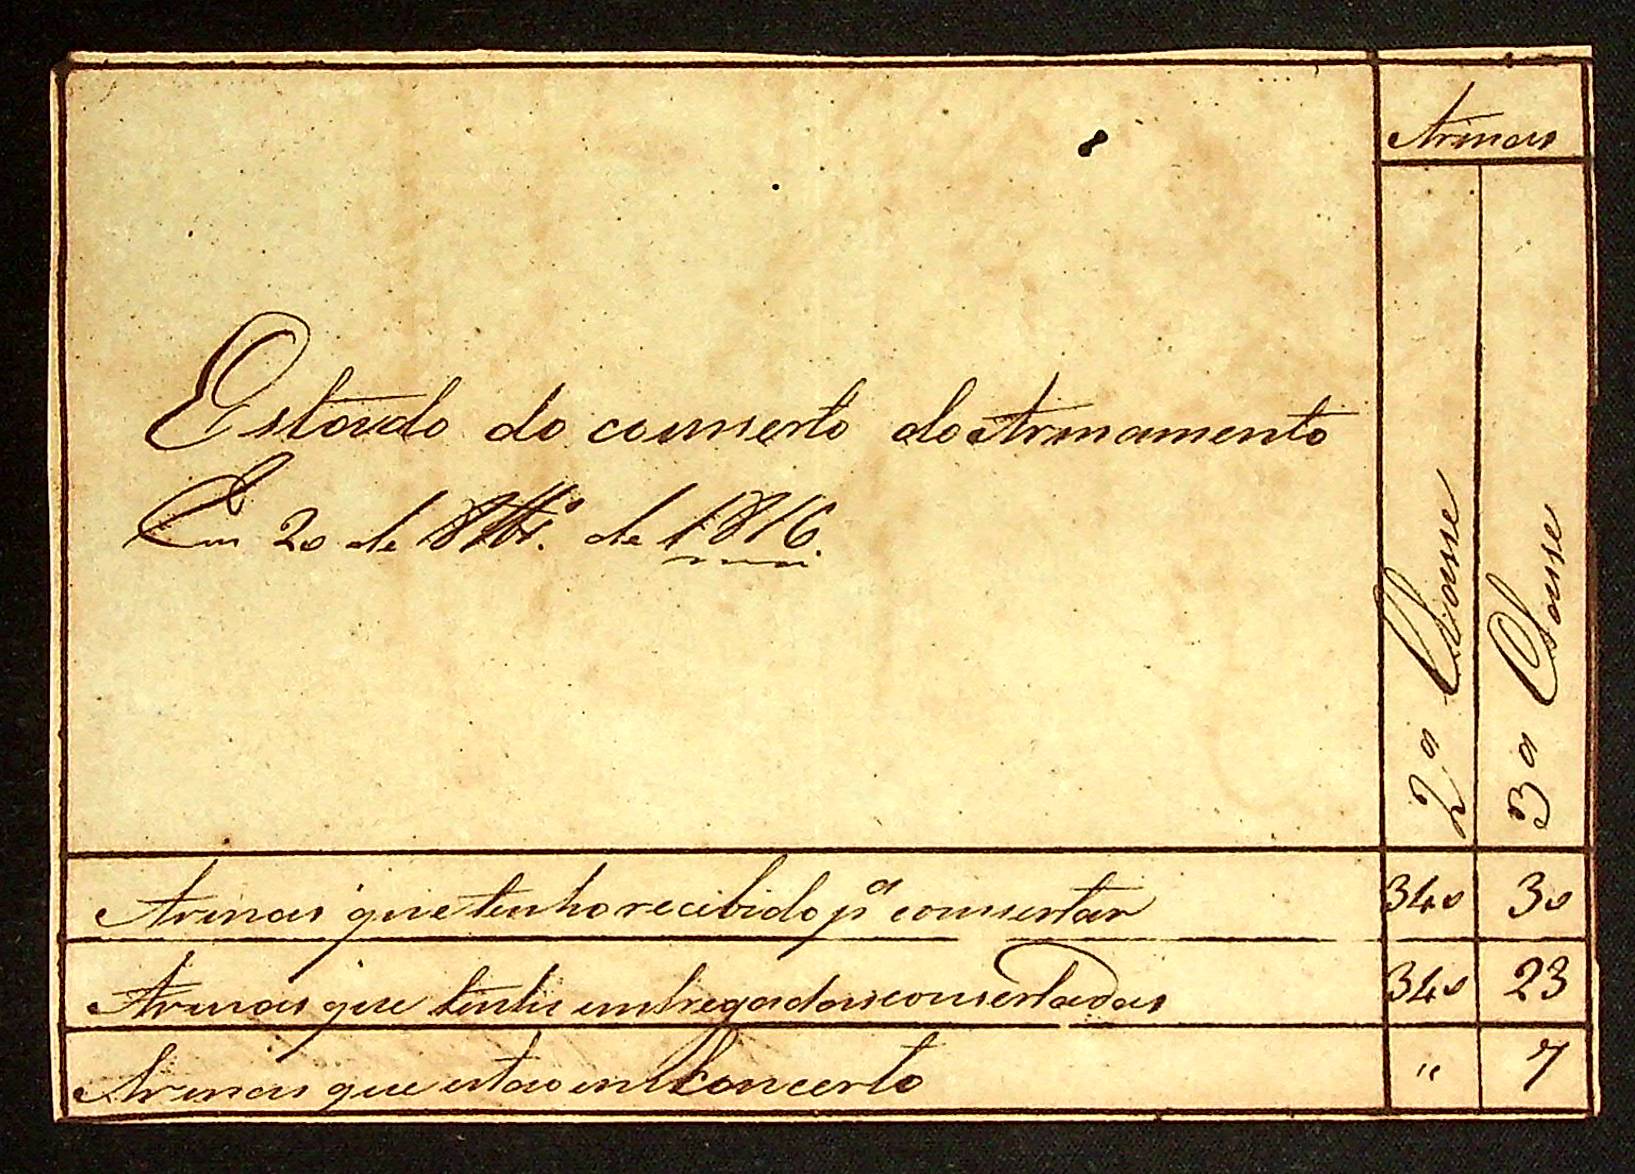 Armas
2ª Classe
3ª Classe
Estado do comserto do Armamento
Em 20 de de 1816.
Armas que tenho recibido pª comsertar 340 30
Armas que tenho entregadas comsertadas 340 23
Armas que estao em Concerto " 7